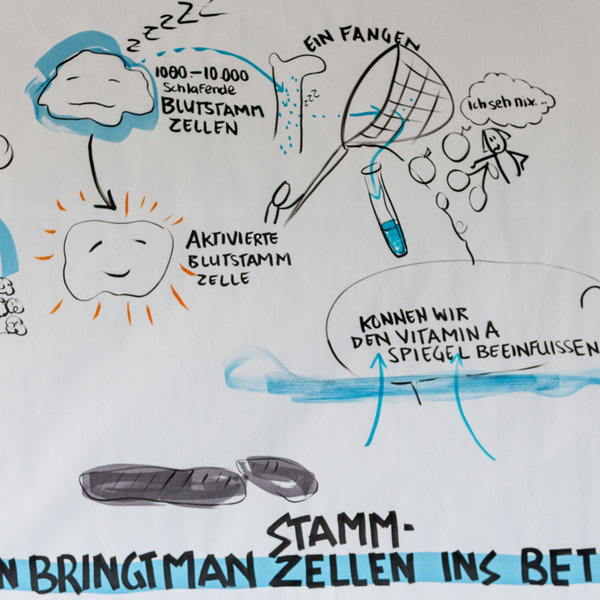 ZZZZZ
1000-10.000
Schlafende
BLUTSTAMM
ZELLEN
zzz
EIN FANGEN
Ich seh nix...
AKTIVIERTE
BLUTSTAMM
ZELLE
KÖNNEN WIR
DEN VITAMIN A
SPIEGEL BEEINFLUISSEN
STAMM-
N BRINGT MAN ZELLEN INS BET